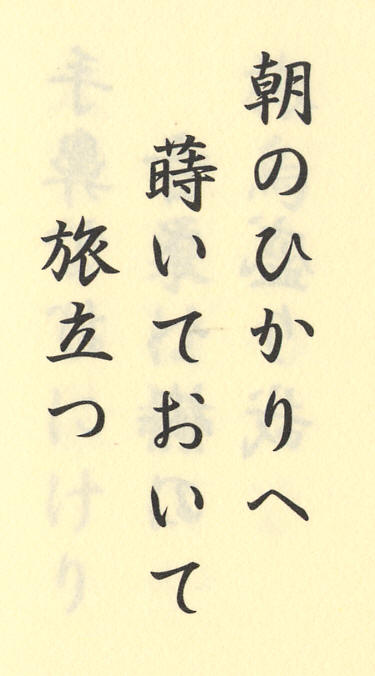 朝のひかりへ
蒔いておいて
旅立つ